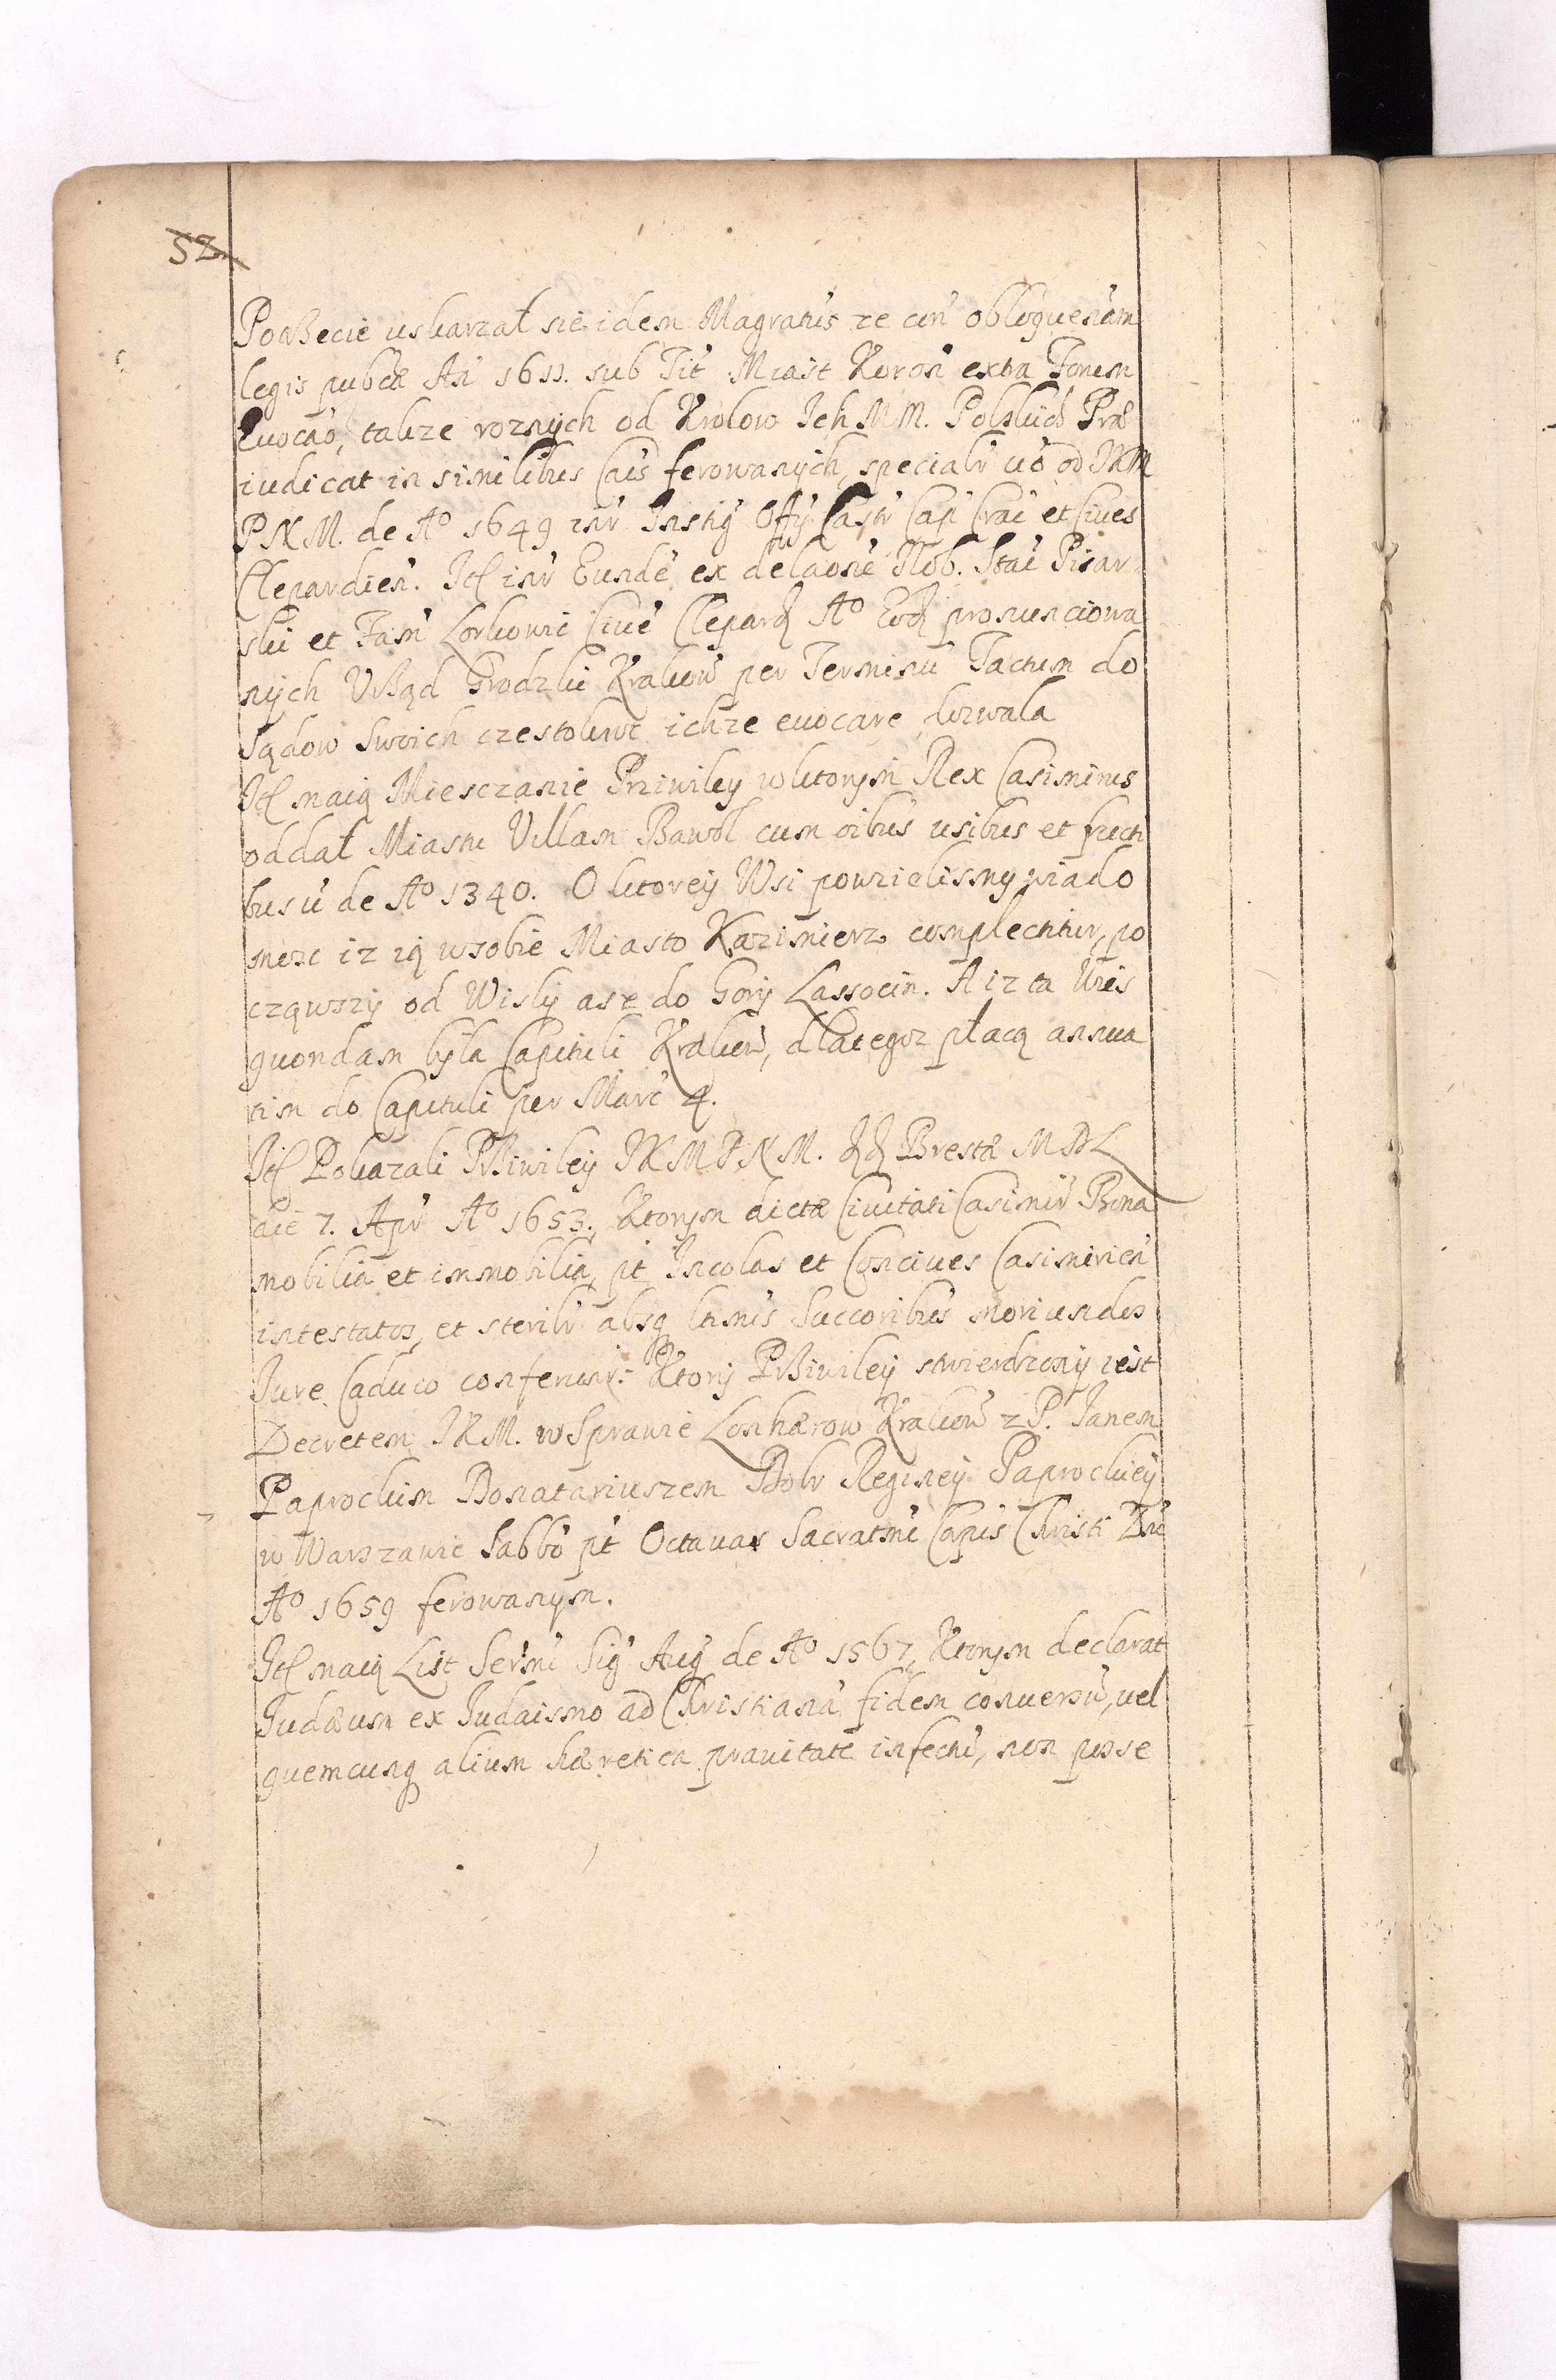 52
Poßecie uskarzał sie idem Magratus ze cum obloquenam
legis pubcæ An 1611. sub Tit Miast Koron extra Forum
Evocao, takze roznych od Krolow Ich MM. Polskich Præ
iudicat in similibus Cais ferowanych, specialr vo od JKM
PNM. de Aº 1649 inr Instig Offy Castr Cap Crac et Cives
Clepardien. It inr Eunde ex delaone Nob. Stai Pisar
ski et Fam Lorkowic Cive Clepard Aº Eod pronunciowa
nych Vrząd Grodzki Krakow per Terminu Tactum do
Sądow Swoich czestokroc ichze evocare,
It maią Miesczanie Priviley w ktorym Rex Casimirus
oddał Miastu Villam Bawoł cum oibus usibus et fructi
bus ü de Aº 1340. O ktorey Wsi powzielismy wiado
mosc iz ią w sobie Miasto Kazimierz complectitur, po
cząwszy od Wisly asz do Gory Lassocin. A iz ta Wies
quondam była Capituli Krakow, dlategoz płacą annua
tim do Capituli per Marc 4.
It Pokazali Priviley JKMPNM. Brestæ MDL
die 7. Apr Aº 1653. Ktorym dictæ Civitati Casimir Bona
mobilia et immobilia, pt Incolas et Concives Casimirien
intestatos, et sterilr absq ltmis Succoribus moriundos
Jure Caduco conferunr. Ktory Priviley stwierdzony iest
Decretem JKM. w Sprawie Lonharow Krakow z P. Janem
Paprockim Donatariuszem Bobr Reginey Paprockiey
w Warszawie Sabbo pt Octavas Sacratmi Corpis Christi
Aº 1659 ferowanym.
It maią List Sermi Sig Aug de Aº 1567, Ktorym declarat
Judæum ex Judaismo ad Christiana fidem conversu, vel
quemcunq alium hæretica pravitate infectu, non posse